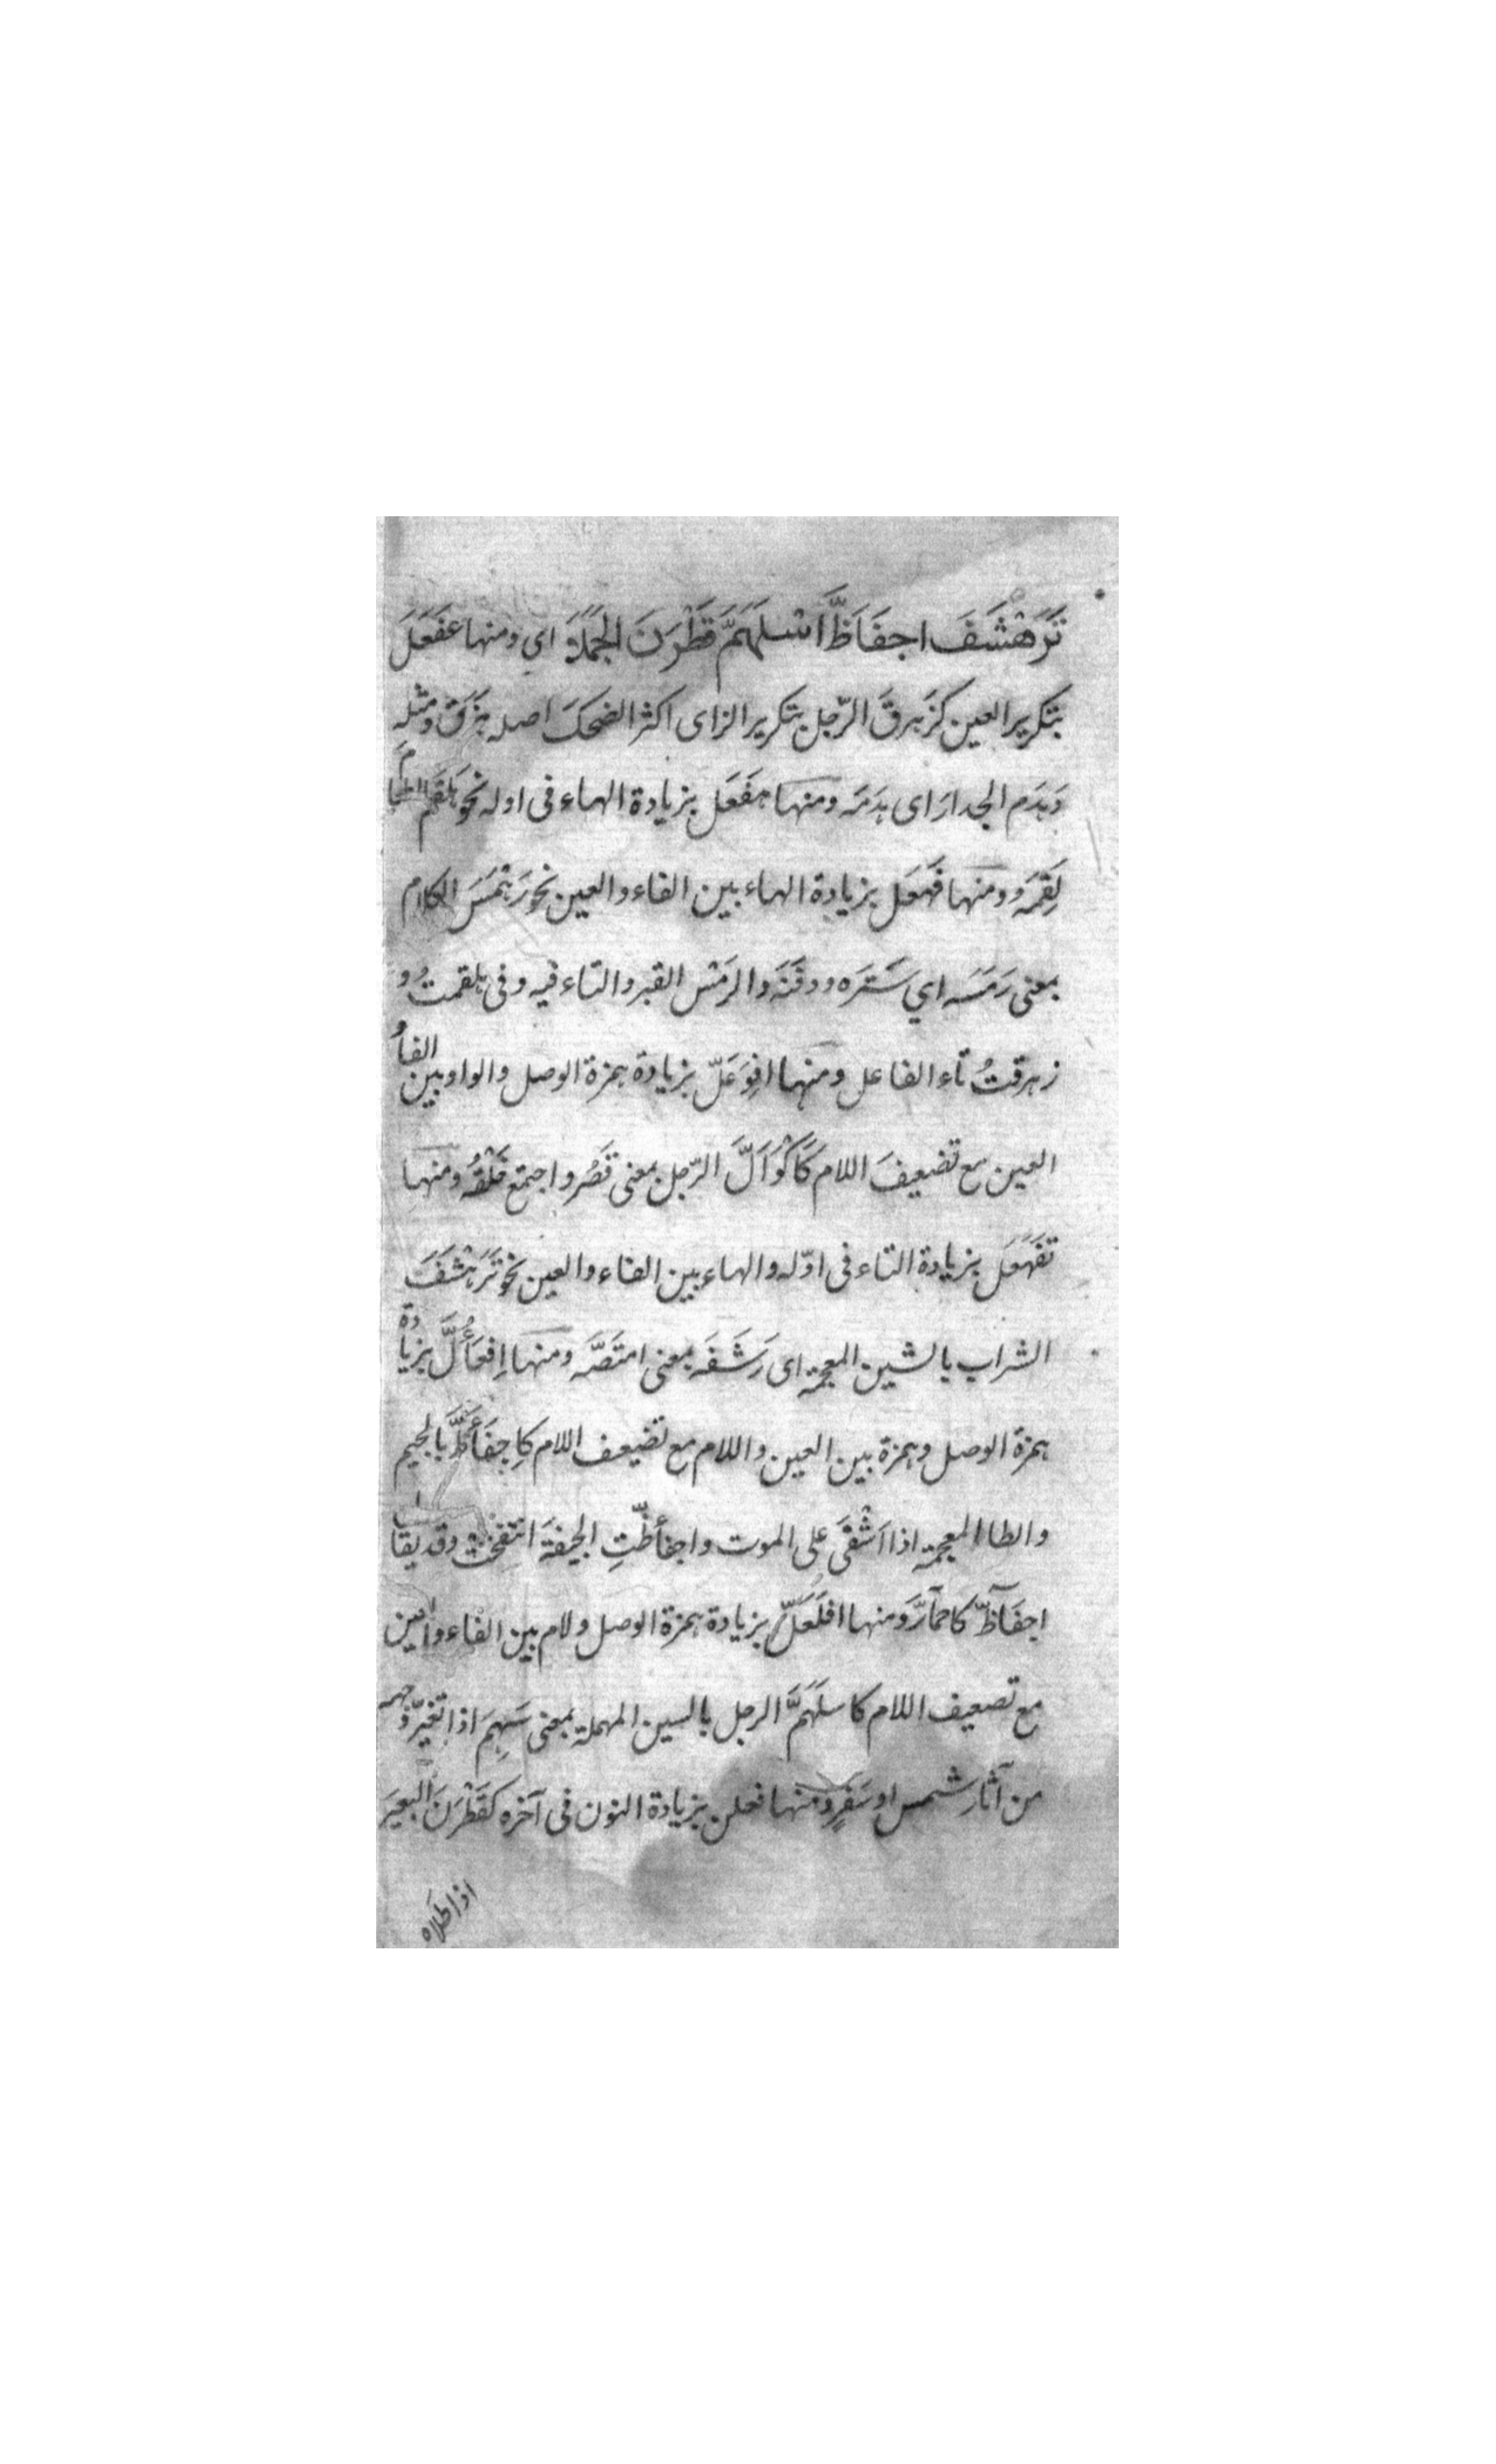 تَرَهْشَفَ اجفَاَظَّ اَسْلَهَمَّ قَطْرَنَ الجَمَلَا اي ومنها عَفَعَلَ
بتكرير العين كزَهزقَ الرّجل بتكرير الزاى اكثر الضحكَ اصله هَزَقَ ومثله
وَهَدَم الجدارَ اى هدَمَه ومنها هَفعَل بزيادة الهاء فى اوله نحو هَلقَمَ الطعام
لَقِمَه ومنها فَهعَل بزيادة الهاء بين الفاء والعين نحو رَهْمَسَ الكلام
بمعنى رَمَسَه اي سَتَرَه ودفنَه والرَمْس القبر والتاء فيه وفى هلقمتُ و
زهزقتُ تاء الفاعل ومنها افوَعَلّ بزيادة همزة الوصل والواو بين الفاء
العين مع تضعيفَ اللام كَاكْوَاَلَّ الرّجل بمعنى قَصُر واجتمع خَلْقُه ومنها
تفَهعَل بزيادة التاء فى اوّله والهاء بين الفاء والعين نحو تَرَهْشَفَ
الشراب بالشين المعجمة اى رَشَفَه بمعنى امتَصَّه ومنها اِفعَأَلَّ بزيادة
همزة الوصل وهمزة بين العين واللام مع تضعيف اللام كاِجفَأَظَّ بالجيم
والظا المعجمة اذا اَشْفَى على الموت واجفأظّتِ الجيفَة انتفخت وقد يقا
اجفَآظّ كاحمآرَّ ومنها افلَعَلَّ بزيادة همزة الوصل ولام بين الفاء والعين
مع تصعيف اللام كاسلَهَمَّ الرجل بالسين المهملة بمعنى سَهِمَ اذا تغيّر وجهه
من آثارِ شمس او سَفرٍ ومنها فعلن بزيادة النون فى آخره كقَطْرَنَ البعيرَ
اذا طلاه